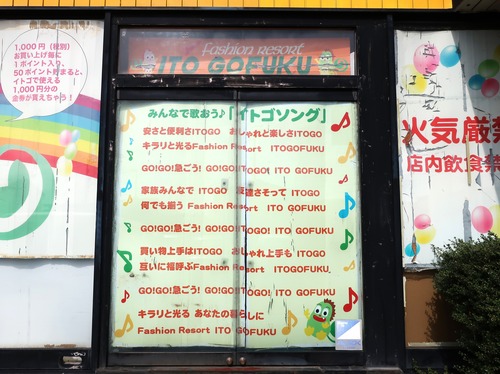 1,000円（税別）
お買い上げ毎に
1ポイント入り、
50ポイント貯まると、
イトゴで使える
1,000円分の
金券が貰えちゃう！
Fashion Resort
ITO GOFUKU
みんなで歌おう♪「イトゴソング」
安さと便利さITOGO おしゃれと楽しさITOGO
キラリと光るFashion Resort ITOGOFUKU
GO!GO!急ごう! GO!GO!ITOGO! ITO GOFUKU
家族みんなで ITOGO 友達さそって ITOGO
何でも揃う Fashion Resort ITO GOFUKU
GO!GO!急ごう! GO!GO!ITOGO! ITO GOFUKU
買い物上手はITOGO おしゃれ上手も ITOGO
互いに福呼ぶFashion Resort ITOGOFUKU
GO!GO!急ごう! GO!GO!ITOGO! ITO GOFUKU
キラリと光る あなたの暮らしに
Fashion Resort ITO GOFUKU
火気厳禁
店内飲食禁